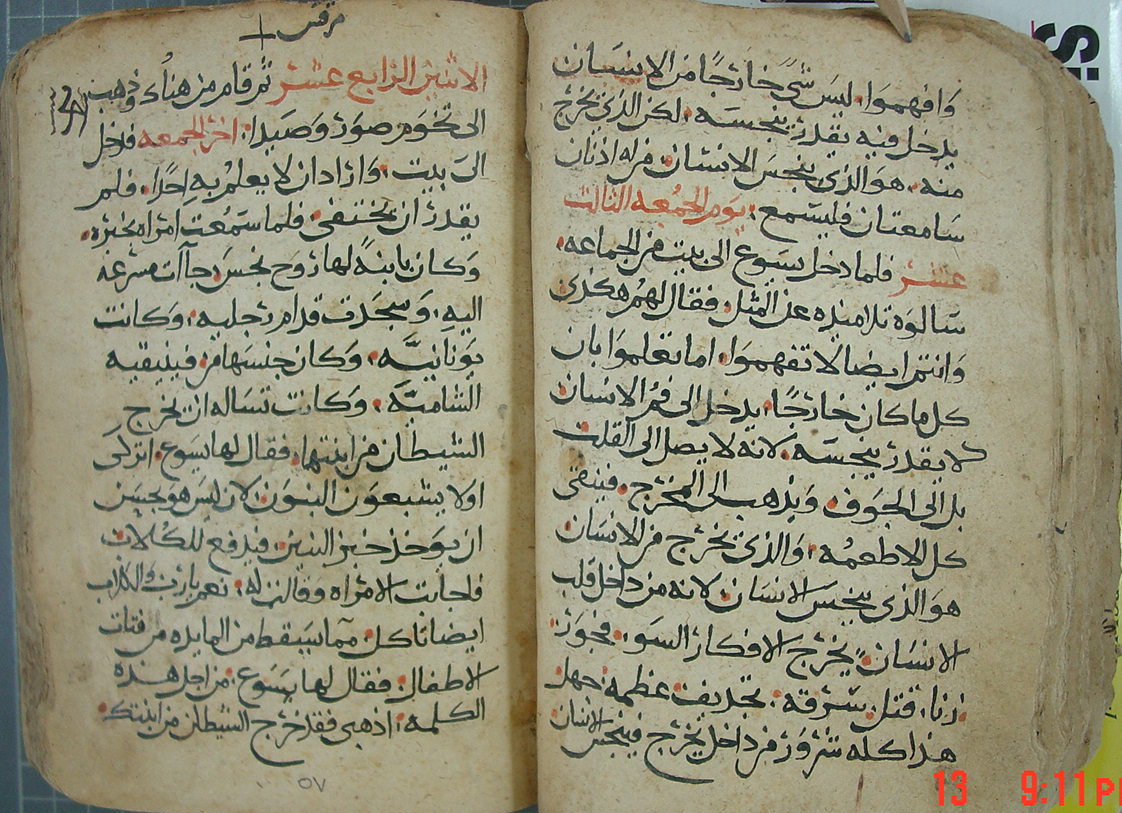 وافهموا. ليس شي خارجًا من الانسان
يدخل فيه يقدر ينجسه. لكن الذي يخرج
منه. هو الذي ينجس الانسان. من له اذنان
سامعتان فليسمع. يوم الجمعه الثالث
عشر فلما دخل يسوع الى بيت من الجماعه.
سالوه تلاميذه عن المثل. فقال لهم هكذى
وانتم ايضا لا تفهموا. اما تعلموا بان
كل ما كان خارجًا. يدخل الى فم الانسان
لا يقدر ينجسه. لانه لا يصل الى القلب
بل الى الجوف. ويذهب الى المخرج. فينقى
كل الاطعمه. والذي يخرج من الانسان
هو الذي ينجس الانسان. لانه من داخل قلب
الانسان. يخرج الافكار السو. فجور.
زنا. قتل. سرقه. تجديف عظمه. جهل
هذا كله شرور من داخل يخرج فينجس الانسان
مرقس
الاثنين الرابع عشر ثم قام من هناك وذهب
الى تخوم صور وصيدا. اخر الجمعه فدخل
الى بيت. واراد ان لا يعلم به احدًا. فلم
يقدر ان يختفى. فلما سمعت امراه بخبره.
وكان بابنةً لها روح نجس. جاآت مسرعه
اليه. وسجدت قدام رجليه. وكانت
يونانيه. وكان جنسها من فينيقيه
الشاميه. وكانت تساله ان يخرج
الشيطان من ابنتها. فقال لها يسوع. اتركى
اولا يشبعون البنون. لان ليس هو بحسن
ان يوخذ خبز البنين. فيدفع للكلاب
فاجابت الامراه وقالت له. نعم يارب والكلاب
ايضا تاكل. مما يسقط من المايده من فتات
الاطفال. فقال لها يسوع. من اجل هذه
الكلمه. اذهبى فقد خرج الشيطان من ابنتك.
٥٧
13 9:11 P